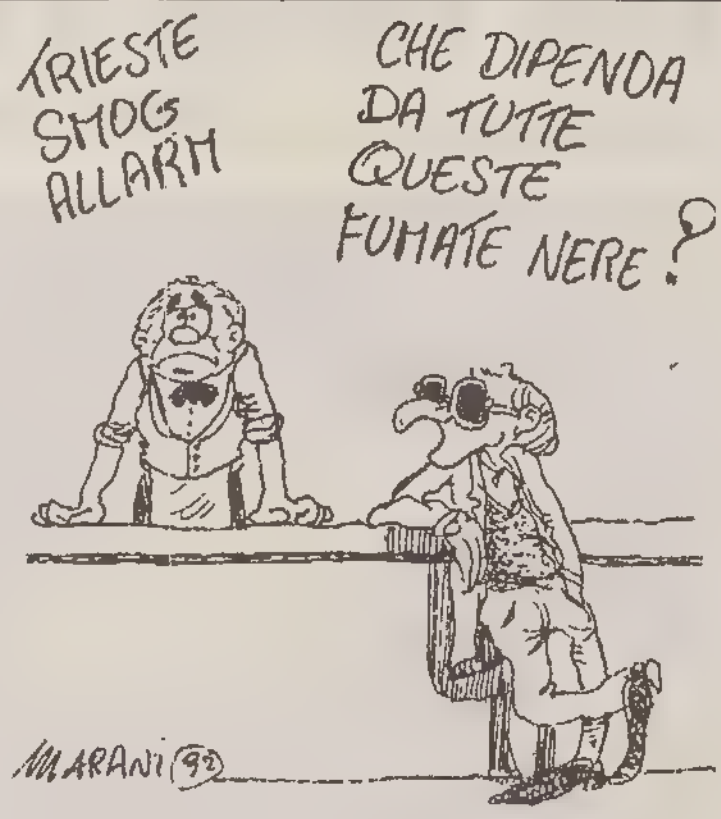 TRIESTE
SMOG
ALLARM
CHE DIPENDA
DA TUTTE
QUESTE
FUMATE NERE?
MARANI 92